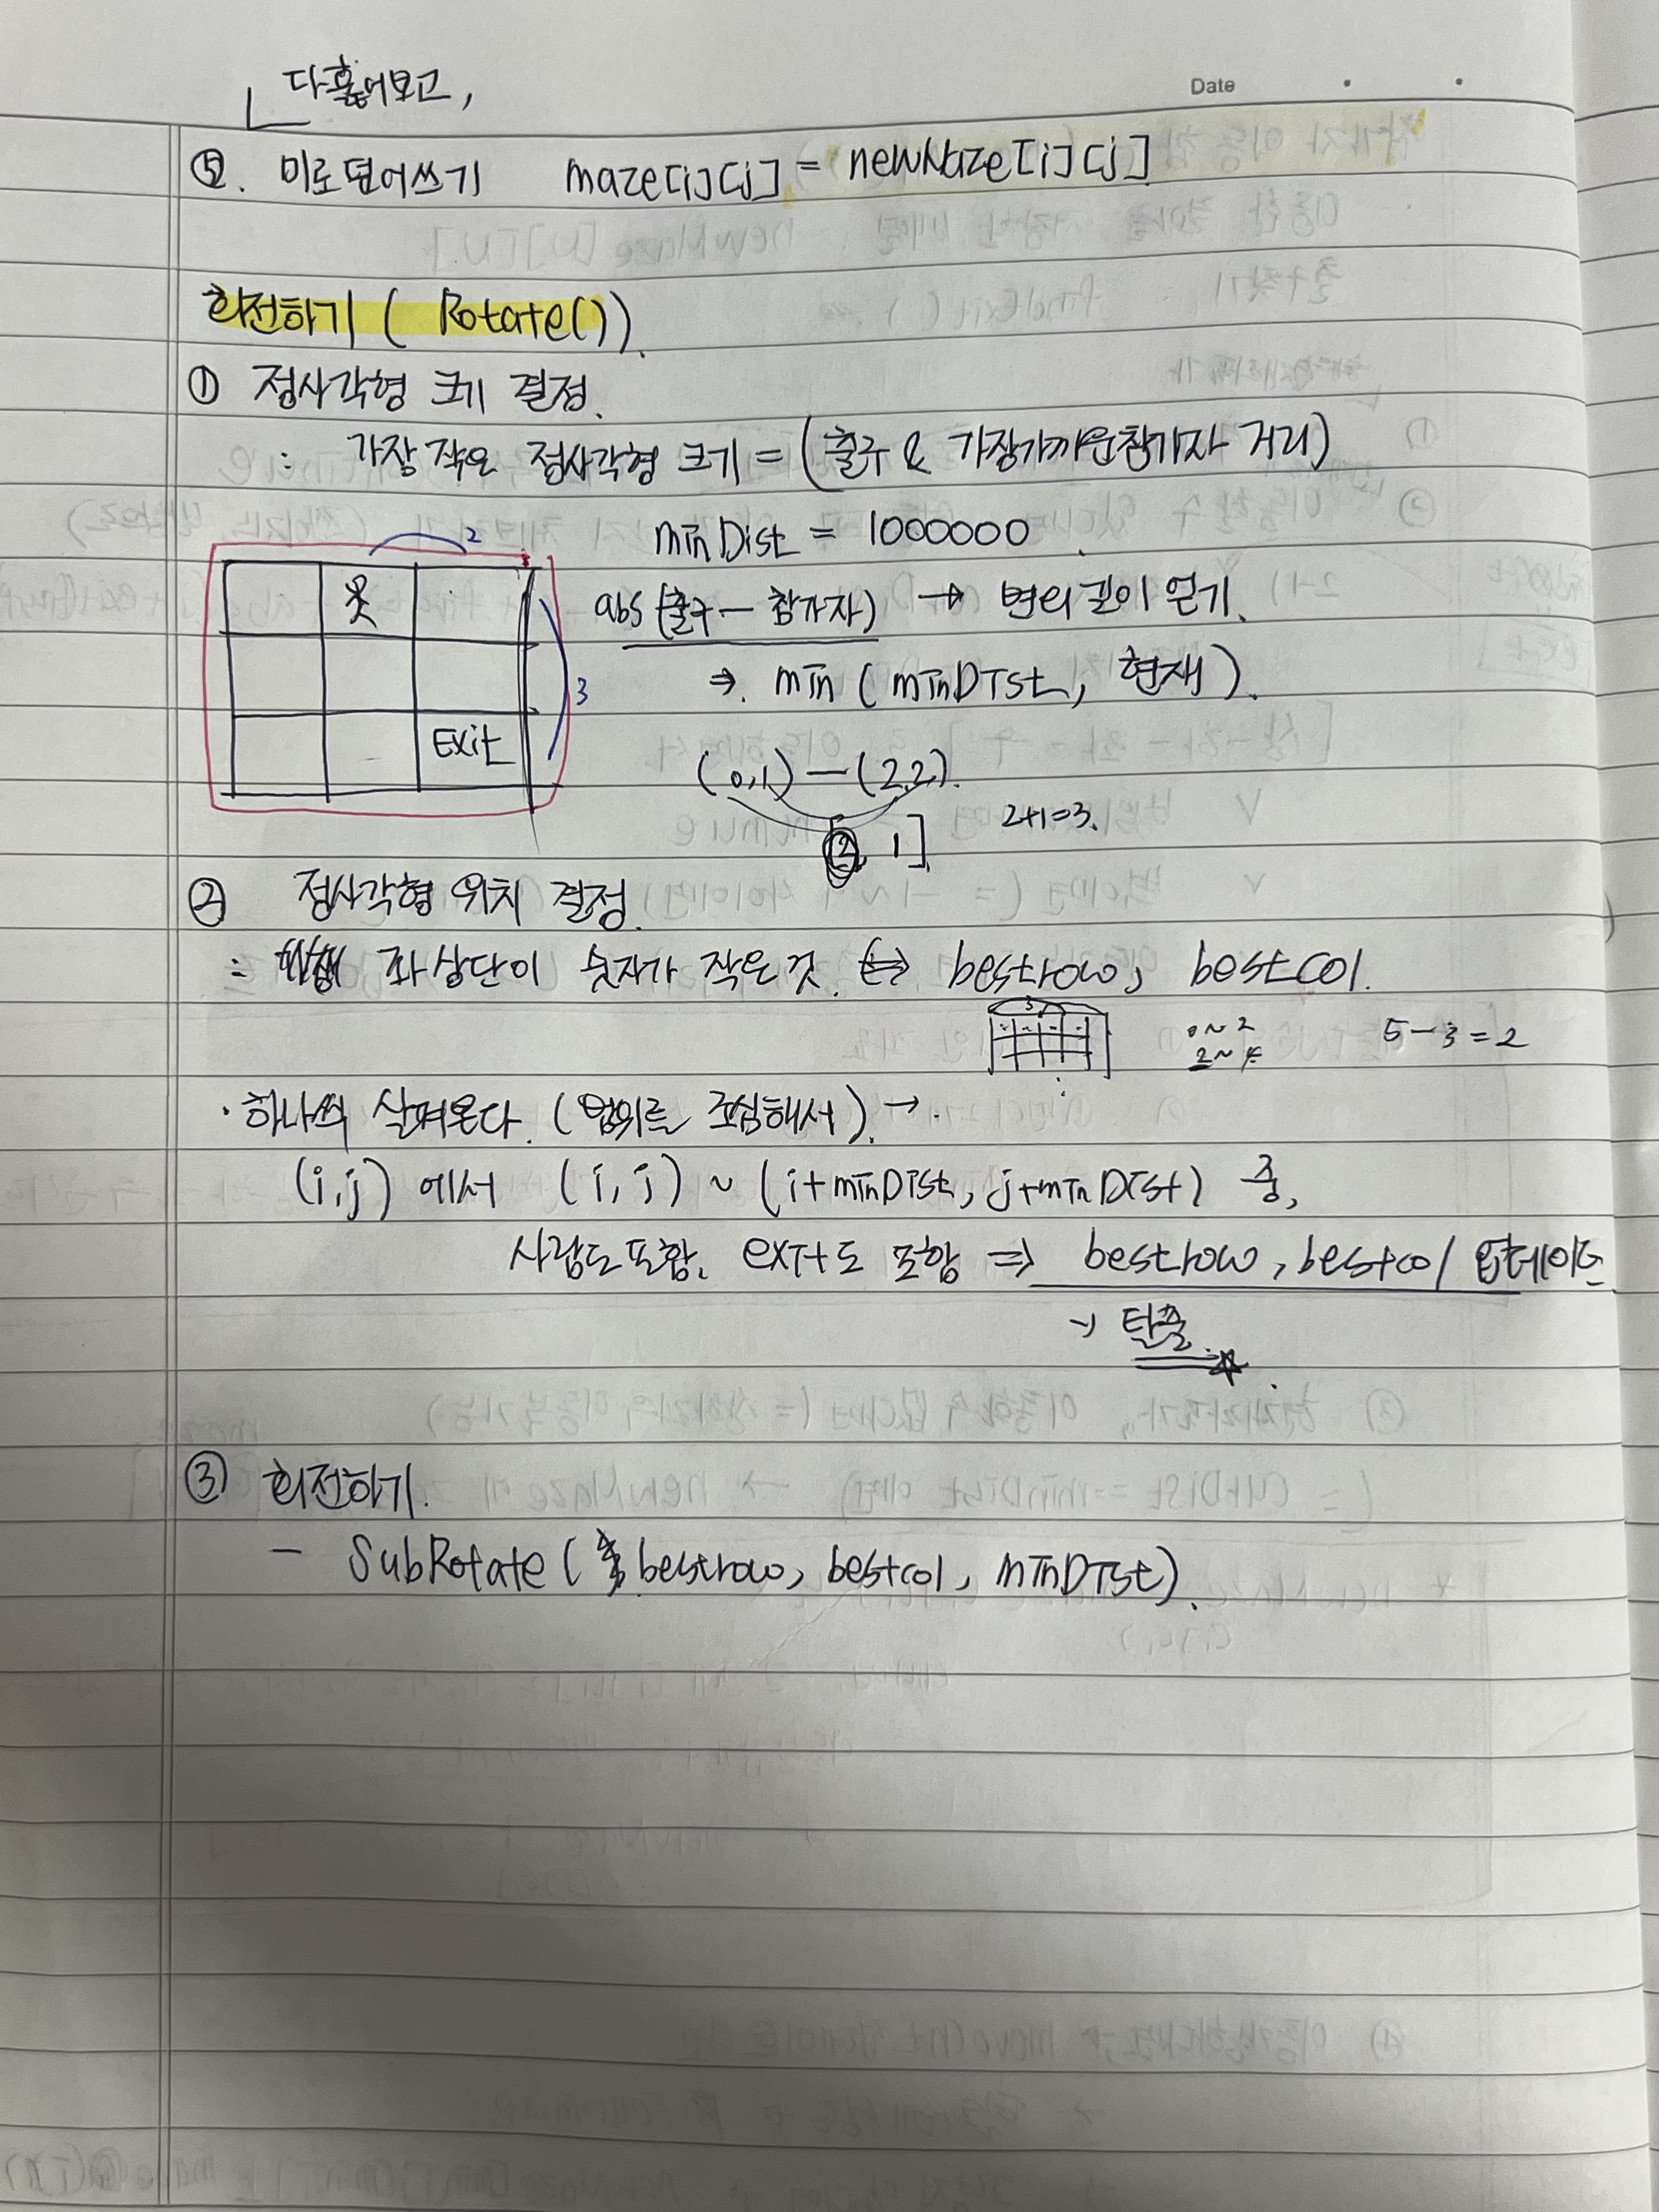 다 훑어보고,
Date
⑤. 미로덮어쓰기 maze[i][j] = newMaze[i][j]
회전하기 ( Rotate()).
① 정사각형 크기 결정.
: 가장 작은 정사각형 크기 = (출구 & 가장가까운참가자 거리)
minDist = 1000000.
2
abs (출구 - 참가자) → 변의 길이 얻기.
⇒ min ( minDist, 현재 ).
3
Exit
(0,1) — (2,2).
2+1=3.
[2, 1]
② 정사각형 위치 결정.
: 좌상단이 숫자가 작은 것. ⇔ bestrow, bestcol.
3
0~2
2~4
5-3=2
· 하나씩 살펴본다. (범위를 조심해서) →.
(i,j) 에서 (i, j) ~ (i+minDist, j+minDist) 중,
사람도 포함. exit도 포함 ⇒ bestrow, bestcol 업데이트
→ 탈출
③ 회전하기.
- SubRotate( bestrow, bestcol, minDist).